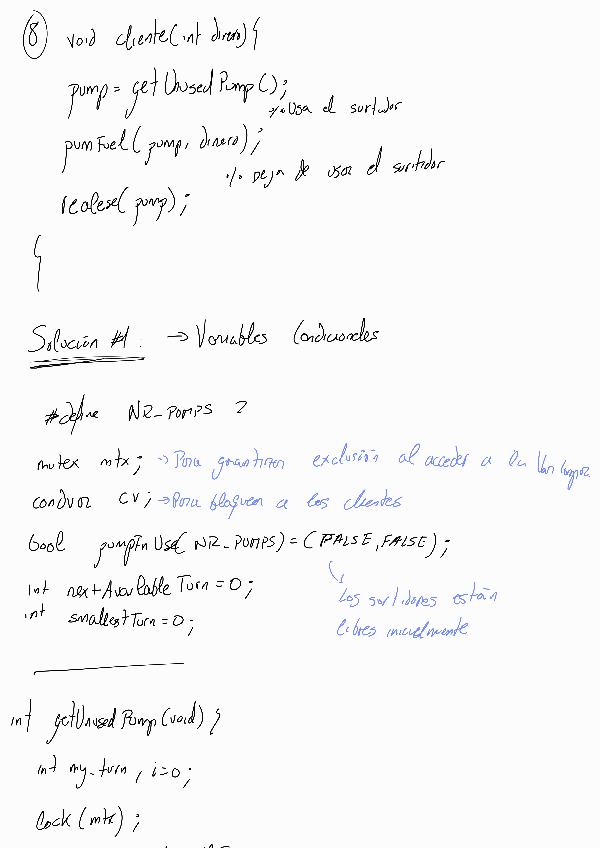 ⑧ void cliente(int dinero){
pump = getUnusedPump();
% Usa el surtidor
pumFuel(pump, dinero);
% Deja de usar el surtidor
realese(pump);
}
Solución #1. → Variables Condicionales
#define NR_PUMPS 2
mutex mtx; → Para garantizar exclusión al acceder a la
condvar cv; → Para bloquear a los clientes
bool pumpInUse(NR_PUMPS) = (FALSE, FALSE);
int nextAvailableTurn = 0;
int smallestTurn = 0;
Los surtidores están
libres inicialmente
int getUnusedPump(void) {
int my_turn, i=0;
lock(mtx);